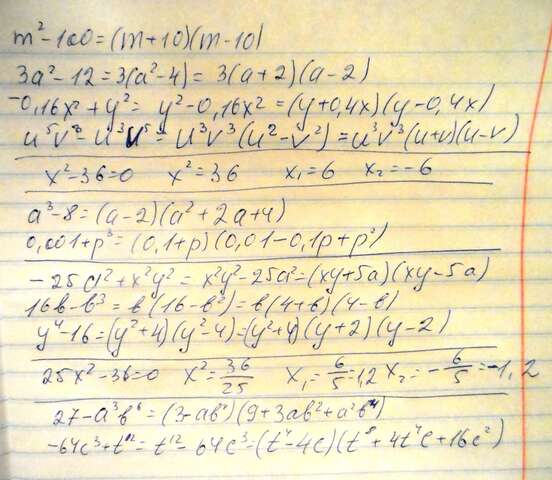 m²-100=(m+10)(m-10)
3a²-12=3(a²-4)=3(a+2)(a-2)
-0,16x²+y²= y²-0,16x²=(y+0,4x)(y-0,4x)
u⁵v³-u³v⁵= u³v³(u²-v²)=u³v³(u+v)(u-v)
x²-36=0 x²=36 x₁=6 x₂=-6
a³-8=(a-2)(a²+2a+4)
0,001+p³=(0,1+p)(0,01-0,1p+p²)
-25a²+x²y²= x²y²-25a²=(xy+5a)(xy-5a)
16b-b³=b(16-b²)=b(4+b)(4-b)
y⁴-16=(y²+4)(y²-4)=(y²+4)(y+2)(y-2)
25x²-36=0 x²=36/25 x₁=6/5=1,2 x₂=-6/5=-1,2
27-a³b⁶=(3-ab²)(9+3ab²+a²b⁴)
-64c³+t¹²=t¹²-64c³=(t⁴-4c)(t⁸+4t⁴c+16c²)